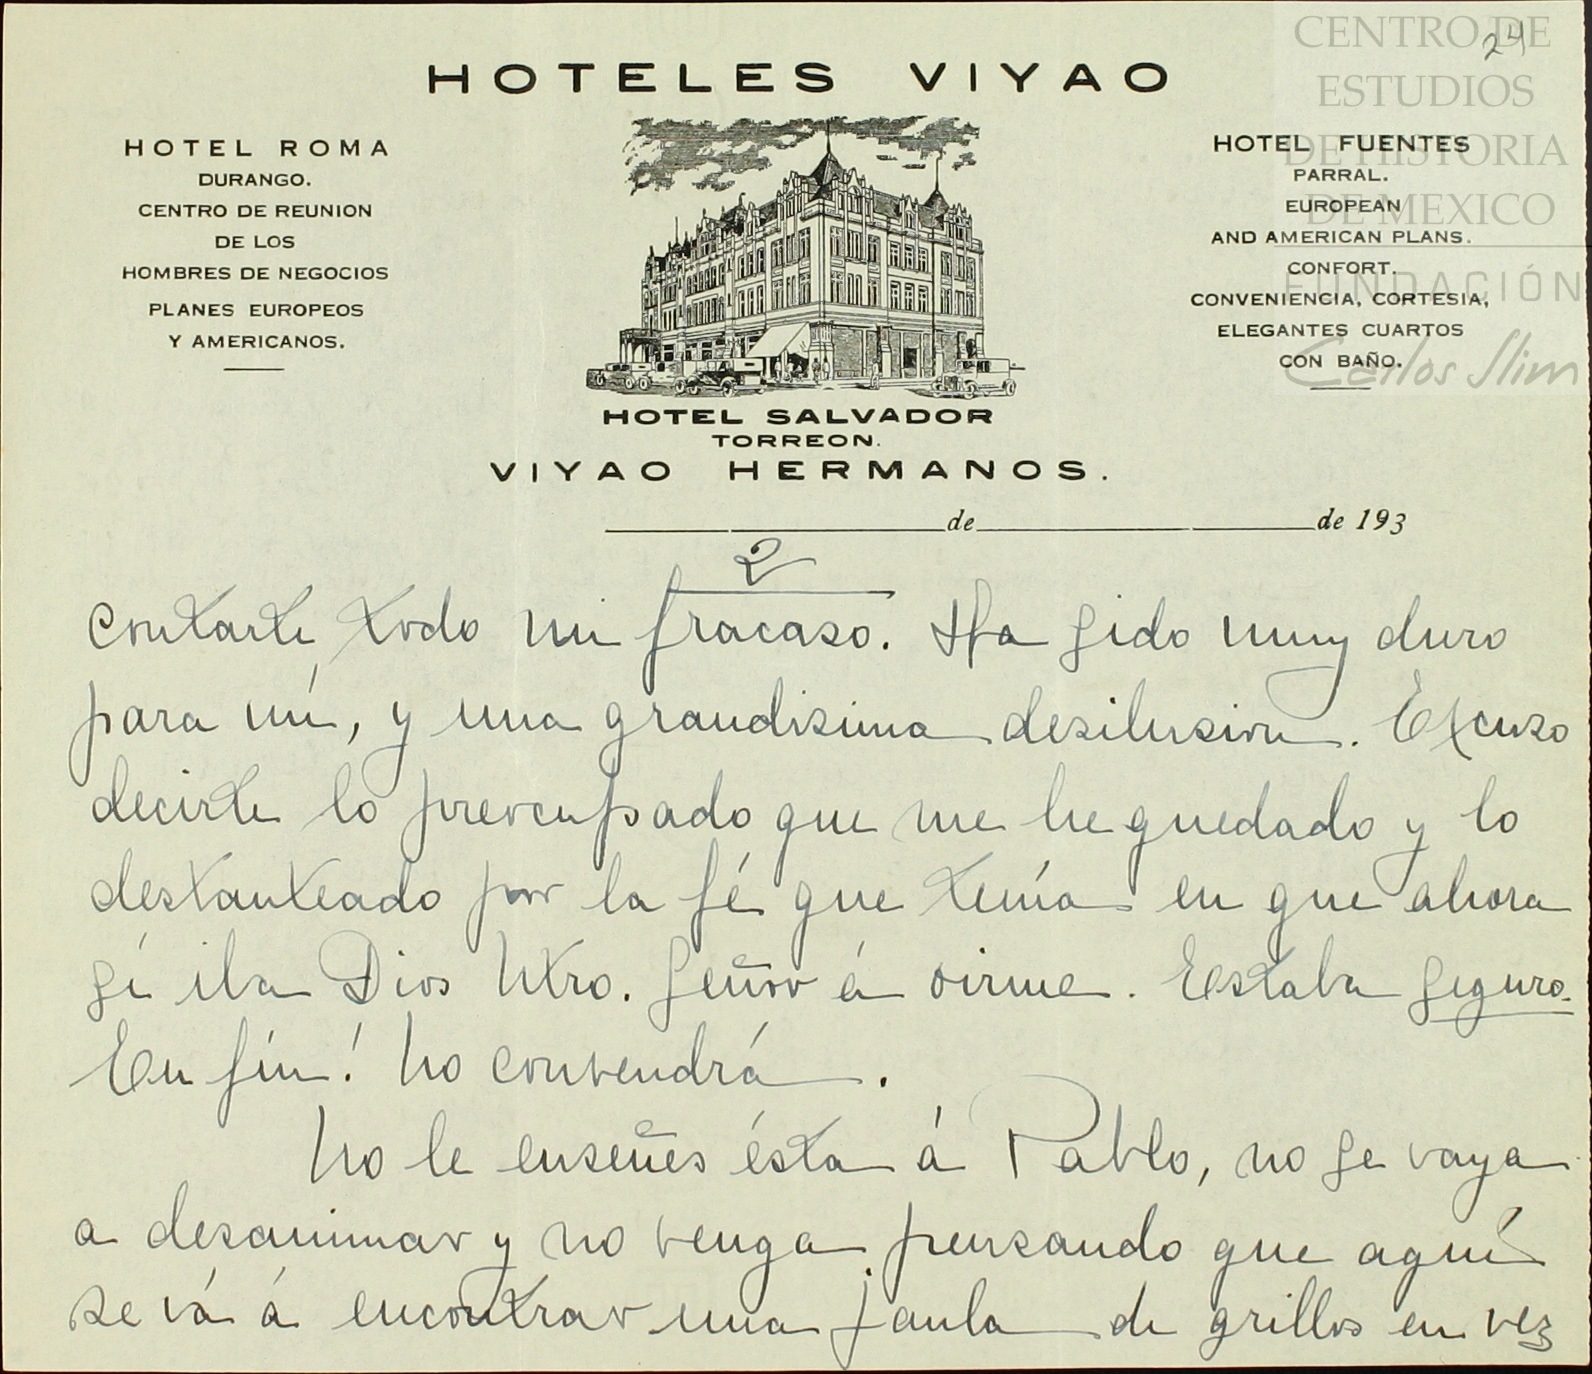 CENTRO DE
ESTUDIOS
DE HISTORIA
DE MEXICO
FUNDACIÓN
Carlos Slim
24
HOTELES VIYAO
HOTEL ROMA
DURANGO.
CENTRO DE REUNION
DE LOS
HOMBRES DE NEGOCIOS
PLANES EUROPEOS
Y AMERICANOS.
HOTEL FUENTES
PARRAL.
EUROPEAN
AND AMERICAN PLANS.
CONFORT.
CONVENIENCIA, CORTESIA,
ELEGANTES CUARTOS
CON BAÑO.
HOTEL SALVADOR
TORREON.
VIYAO HERMANOS.
de de 193
2
contarte todo mi fracaso. Ha sido muy duro
para mí, y una grandisima desilusion. Excuso
decirte lo preocupado que me he quedado y lo
destanteado por la fé que tenía en que ahora
sí iba Dios Ntro. Señor á oirme. Estaba seguro.
En fín! No convendrá.
No le enseñes ésta á Pablo, no se vaya
a desanimar y no venga pensando que aquí
se vá á encontrar una jaula de grillos en vez